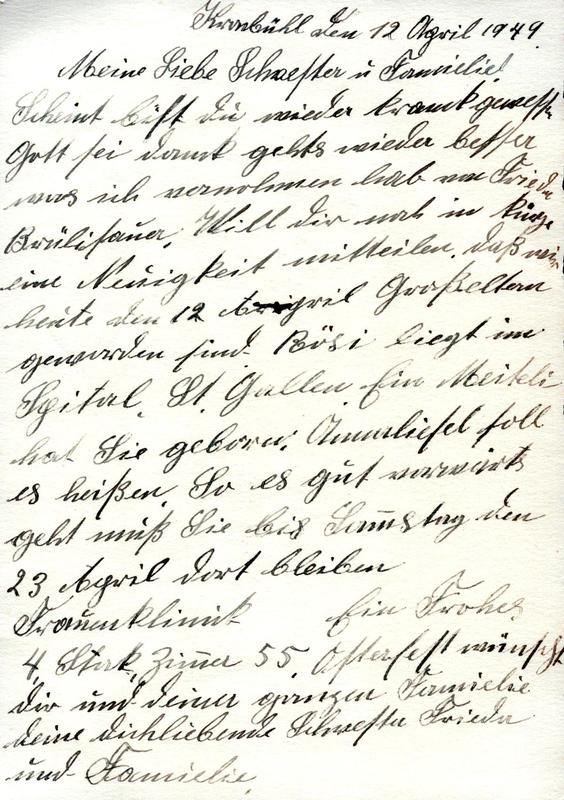 Krabühl den 12 April 1949.
Meine Liebe Schwester u Familie!
Scheint bist du wieder krank gewesen
Gott sei dank gehts wieder besser
was ich vernohmen hab von Frieda
Brülisauer. Will dir noch in kürze
eine Neuigkeit mitteilen, daß wir
heute den 12 April Großeltern
geworden sind. Rösi liegt im
Spital, St. Gallen Ein Meiteli
hat Sie geborn; Annaliesel soll
es heißen. So es gut vorwärts
geht muß Sie bis Samstag den
23 April dort bleiben
Frauenklinik Ein Frohes
4, Stok, Zimer 55. Osterfest wünscht
dir und deiner ganzen Familie
deine dichliebende Schwester Frieda
und Familie